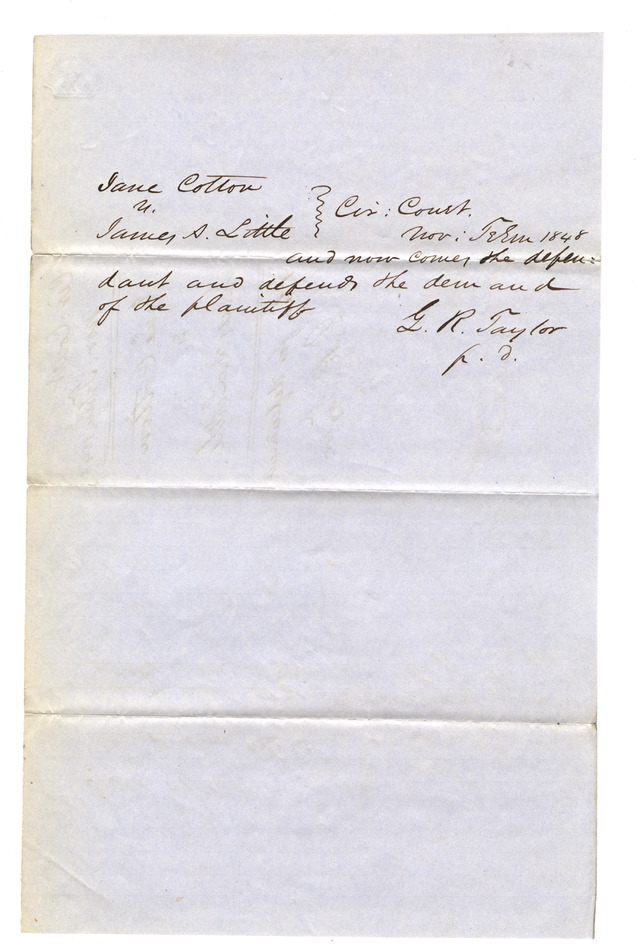 Jane Cotton
v.
James S. Little } Cir: Court.
Nov: Term 1848
and now comes the defen-
dant and defends the demand
of the plaintiff
G. R. Taylor
p. d.